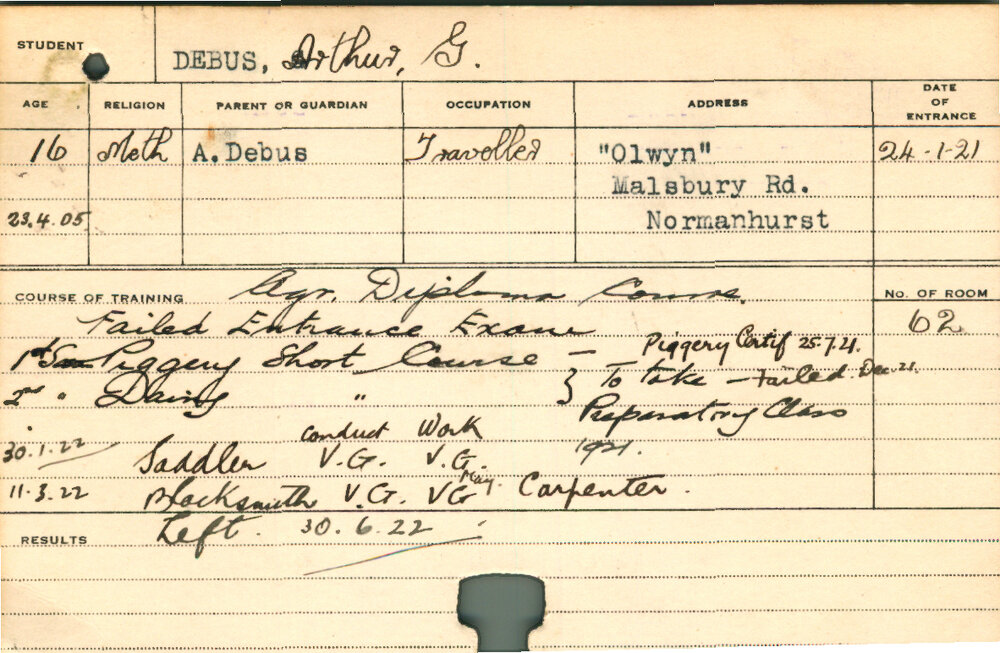 STUDENT DEBUS, Arthur, G.
AGE RELIGION PARENT OR GUARDIAN OCCUPATION ADDRESS DATE OF ENTRANCE
16 Meth A.Debus Traveller "Olwyn" 24-1-21
Malsbury Rd.
23.4.05 Normanhurst
COURSE OF TRAINING Agr. Diploma Course. No. OF ROOM
Failed Entrance Exam 62
1st Sem Piggery Short Course – Piggery Certif 25.7.21.
2nd " Dairy " } To take – Failed. Dec. 21.
Preparatory Class
Conduct Work 1921.
30.1.22 Saddler V.G. V.G.
11.3.22 Blacksmith V.G. VG May. Carpenter.
RESULTS Left. 30.6.22